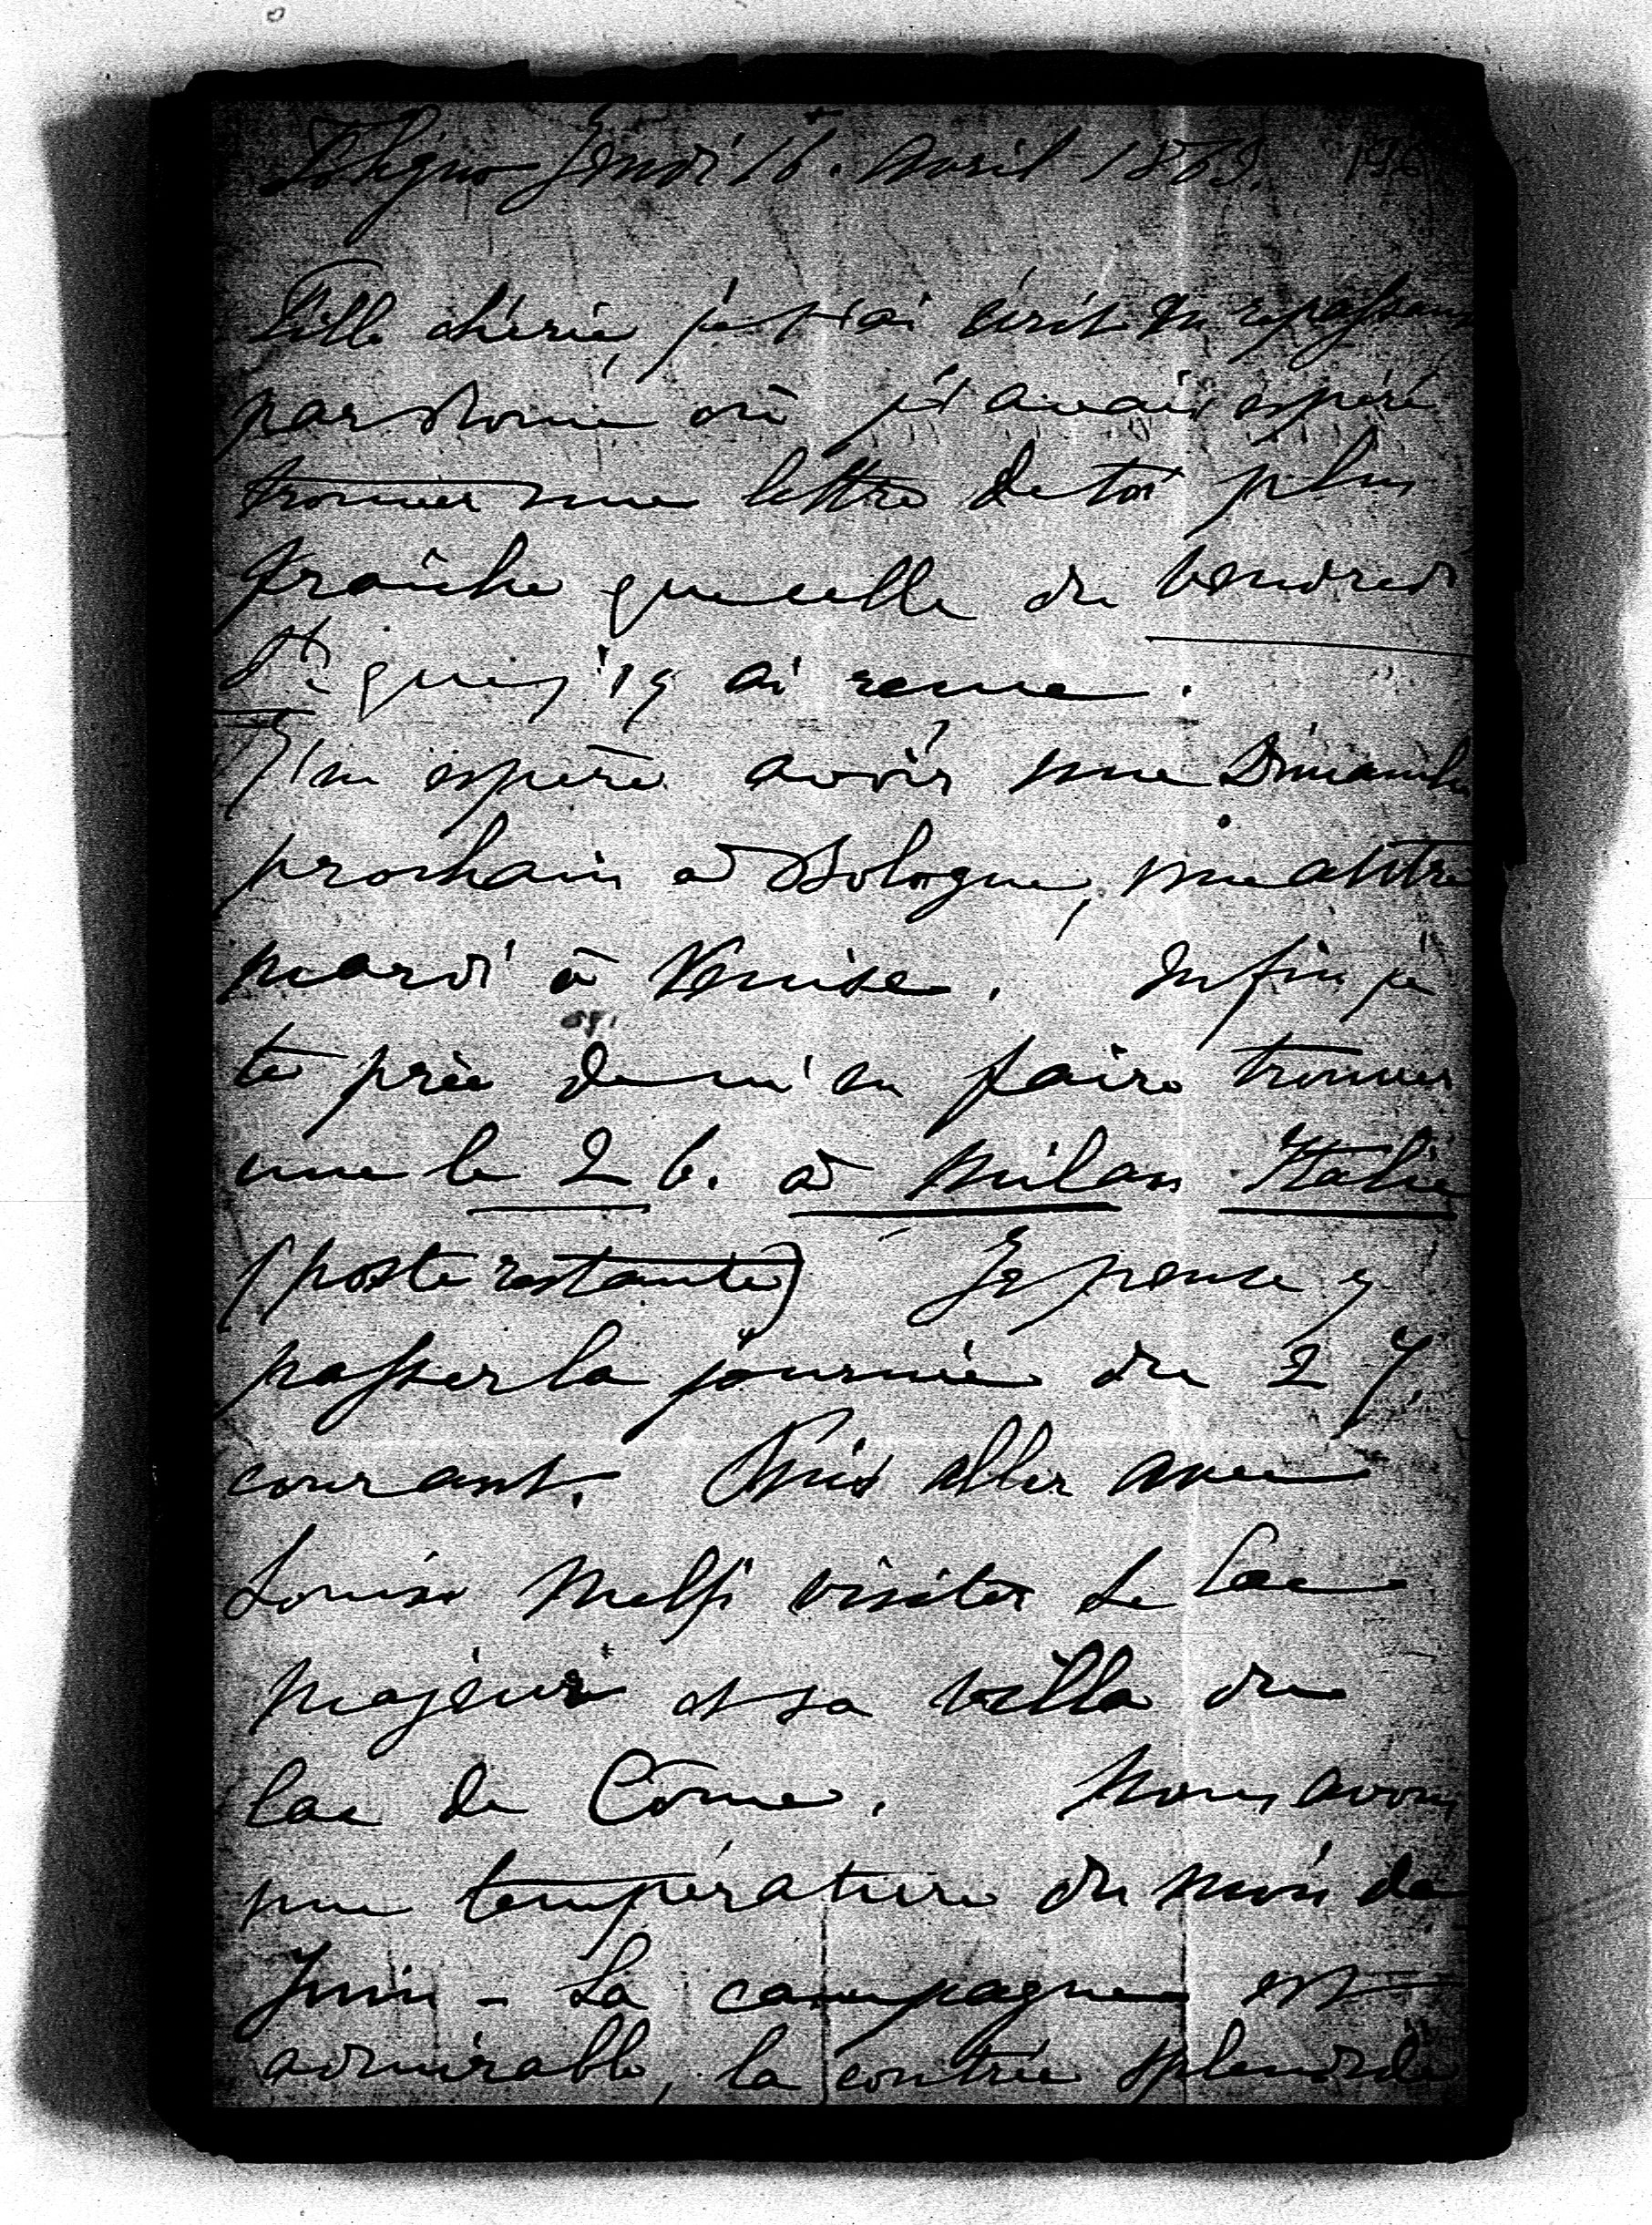 Foligno Jeudi 16. Avril 1863.
Fille chérie, je t'ai écrit en repassant
par Rome où j'avais espéré
trouver une lettre de toi plus
fraîche que celle du Vendredi
St. que j'y ai reçue.
J'en espère avoir une Dimanche
prochain à Bologne, une autre
mardi à Venise. Enfin je
te prie de m'en faire trouver
une le 26. à Milan Italie
(poste restante) Je pense y
passer la journée du 27
courant. Puis aller avec
Louise Melfi visiter le Lac
majeur et sa villa du
lac de Côme. Nous avons
une température du mois de
Juin - La campagne est
admirable, la contrée splendide